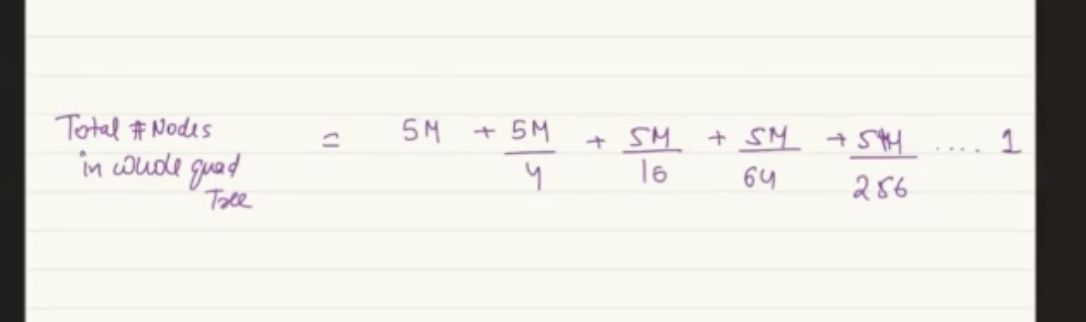 Total # Nodes
in whole quad
Tree
= 5M + 5M/4 + 5M/16 + 5M/64 + 5M/256 .... 1